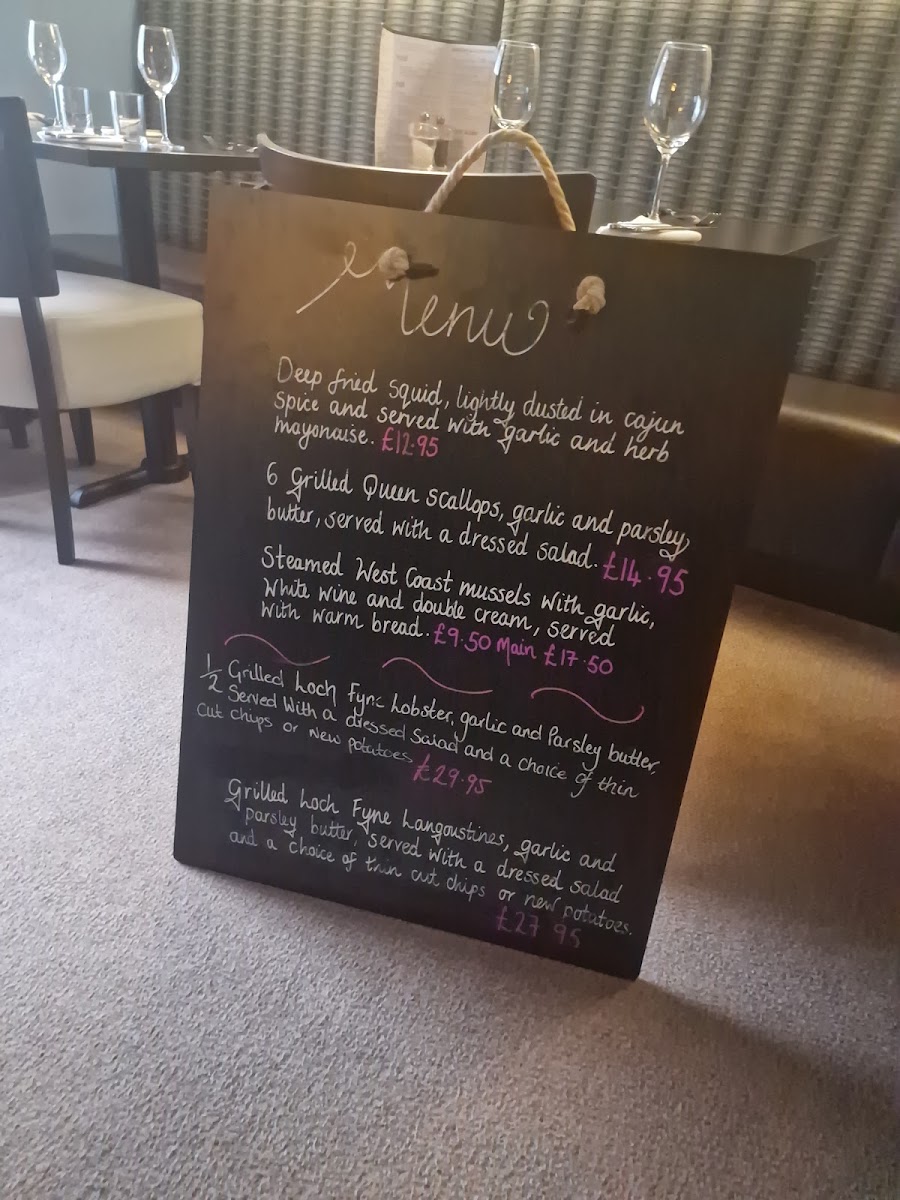 Menu
Deep fried squid, lightly dusted in cajun
spice and served with garlic and herb
mayonaise. £12.95
6 Grilled Queen Scallops, garlic and parsley
butter, served with a dressed salad. £14.95
Steamed West Coast mussels with garlic,
White wine and double cream, served
with warm bread. £9.50 Main £17.50
1/2 Grilled Loch Fyne Lobster, garlic and Parsley butter,
Served With a dressed Salad and a choice of thin
Cut chips or New potatoes £29.95
Grilled Loch Fyne Langoustines, garlic and
parsley butter, served with a dressed salad
and a choice of thin cut chips or new potatoes.
£27.95